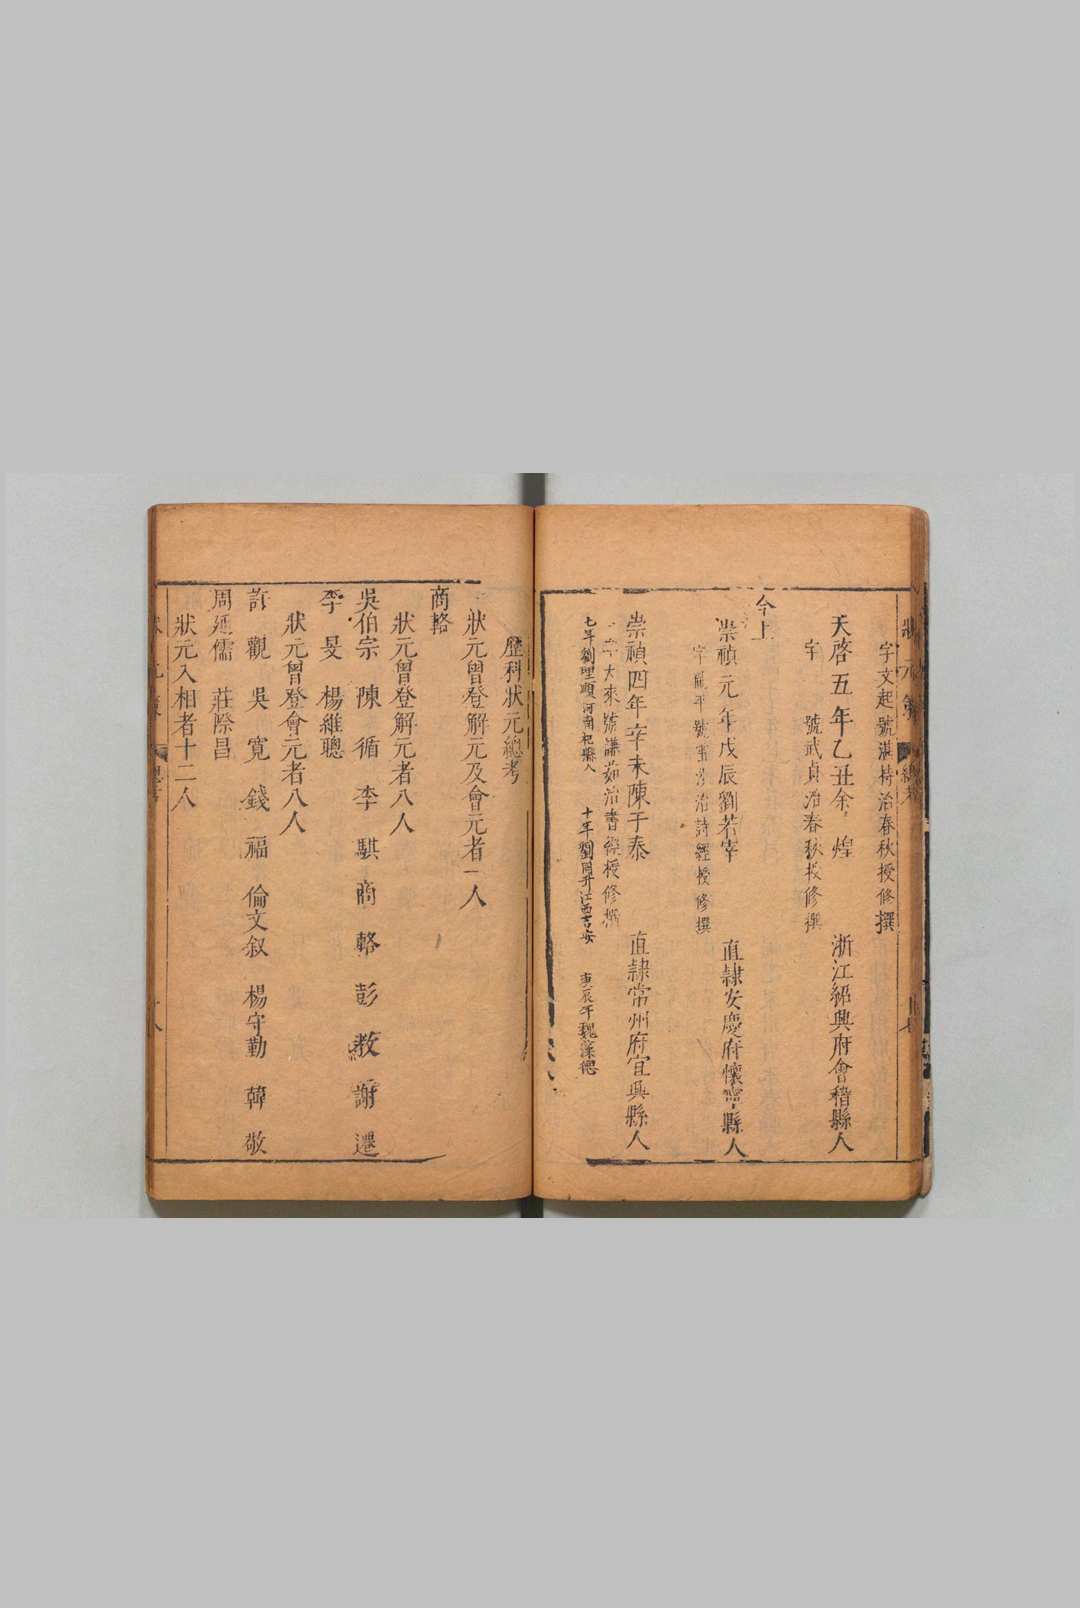 字文起號湛持治春秋授修撰
天啓五年乙丑余煌 浙江紹興府會稽縣人
字 號武貞治春秋授修撰
今上
崇禎元年戊辰劉若宰 直隸安慶府懷寧縣人
字 平號 治詩經授修撰
崇禎四年辛未陳于泰 直隸常州府宜興縣人
字大來號謙茹治書經授修撰
七年劉理順河南杞縣人 十年劉同升江西吉安 庚辰年魏藻德
歷科狀元總考
狀元曾登解元及會元者一人
商輅
狀元曾登解元者八人
吳伯宗 陳循 李騏 商輅 彭教 謝遷
李旻 楊維聰
狀元曾登會元者八人
許觀 吳寬 錢福 倫文叙 楊守勤 韓敬
周延儒 莊際昌
狀元入相者十二人